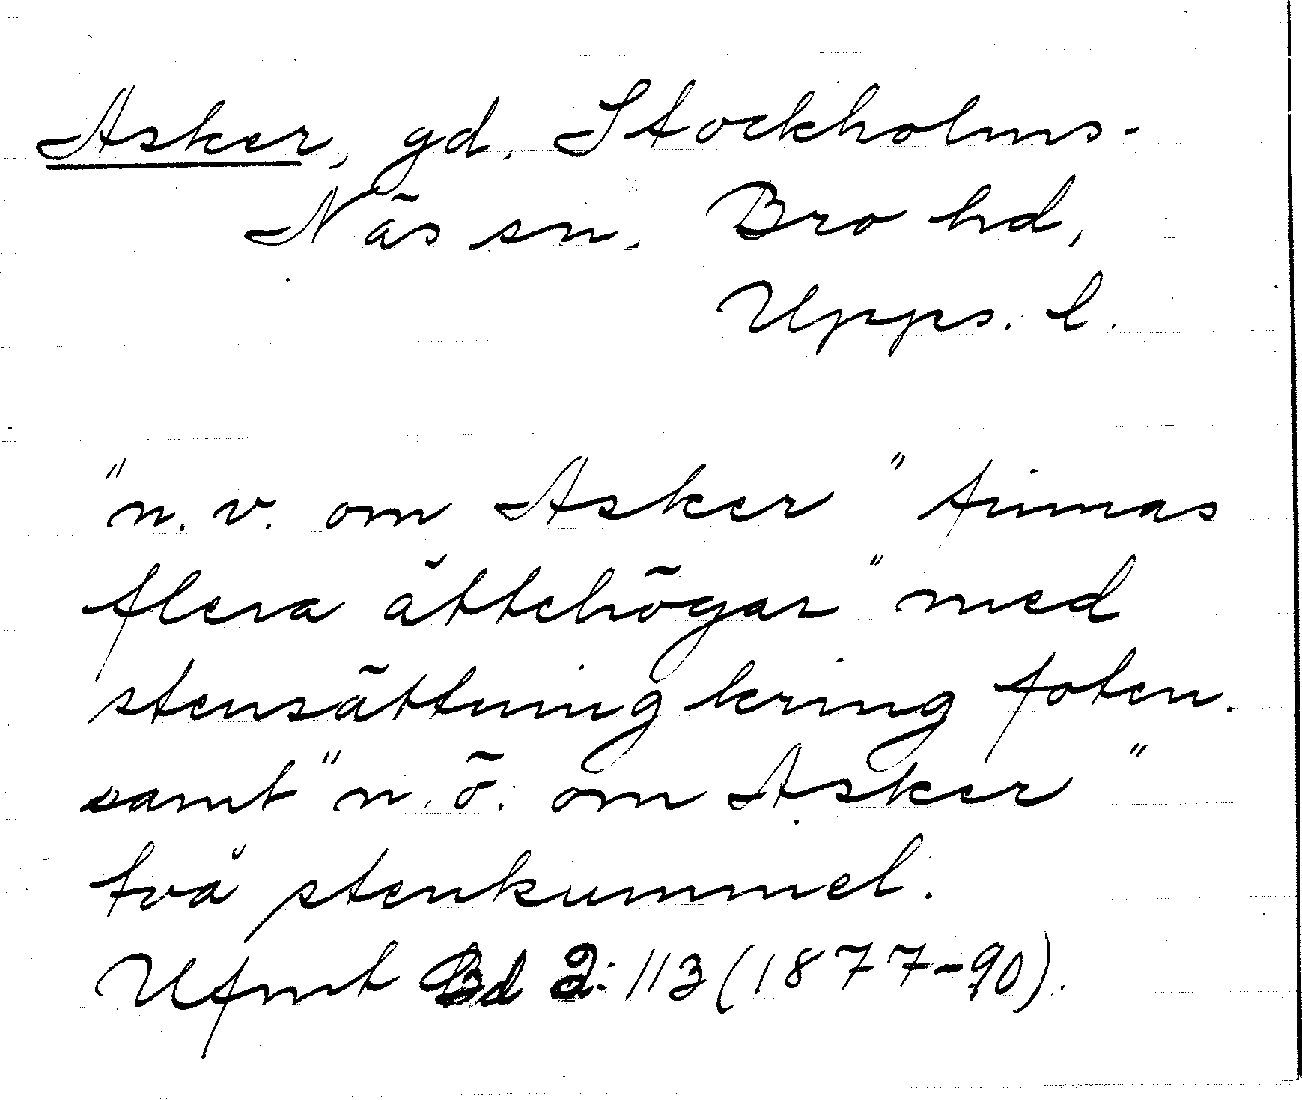 Asker, gd, Stockholms-
Näs sn, Bro hd,
Upps. l.
"n. v. om Asker" finnas
flera ättehögar "med
stensättning kring foten.
samt "n. ö. om Asker"
två stenkummel.
Ufmt Bd 2: 113 (1877-90).